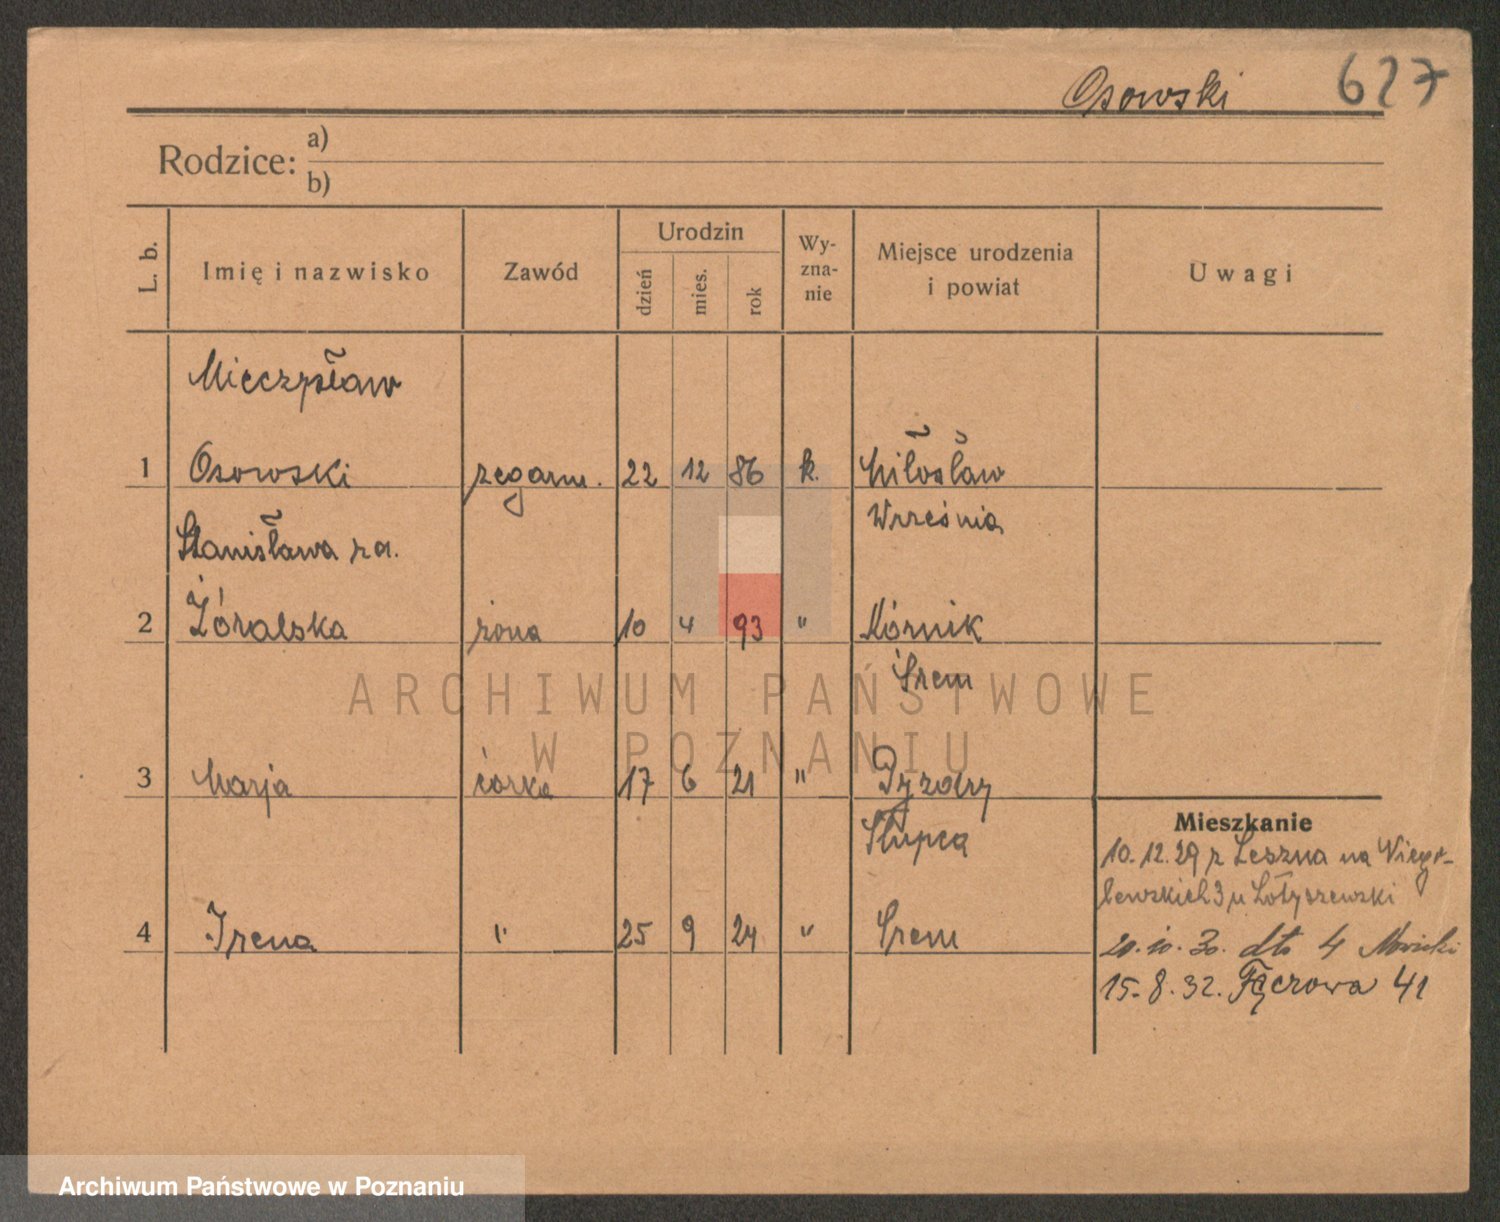 Osowski 627
Rodzice: a)
b)
L. b. Imię i nazwisko Zawód Urodzin dzień mies. rok Wy-zna-nie Miejsce urodzenia i powiat Uwagi
Mieczysław
1 Osowski zegarm. 22 12 86 k. Miłosław
Września
Stanisława za.
2 Żóralska żona 10 4 93 " Kórnik
Śrem
3 Marja córka 17 6 21 " Pyzdry
Słupca
Mieszkanie
10.12.29 z Leszna na
3 u
4 Irena " 25 9 24 " Śrem
20.10.30. dto 4 Nowicki
15.8.32. Łęczowa 41
ARCHIWUM PAŃSTWOWE
W POZNANIU
Archiwum Państwowe w Poznaniu